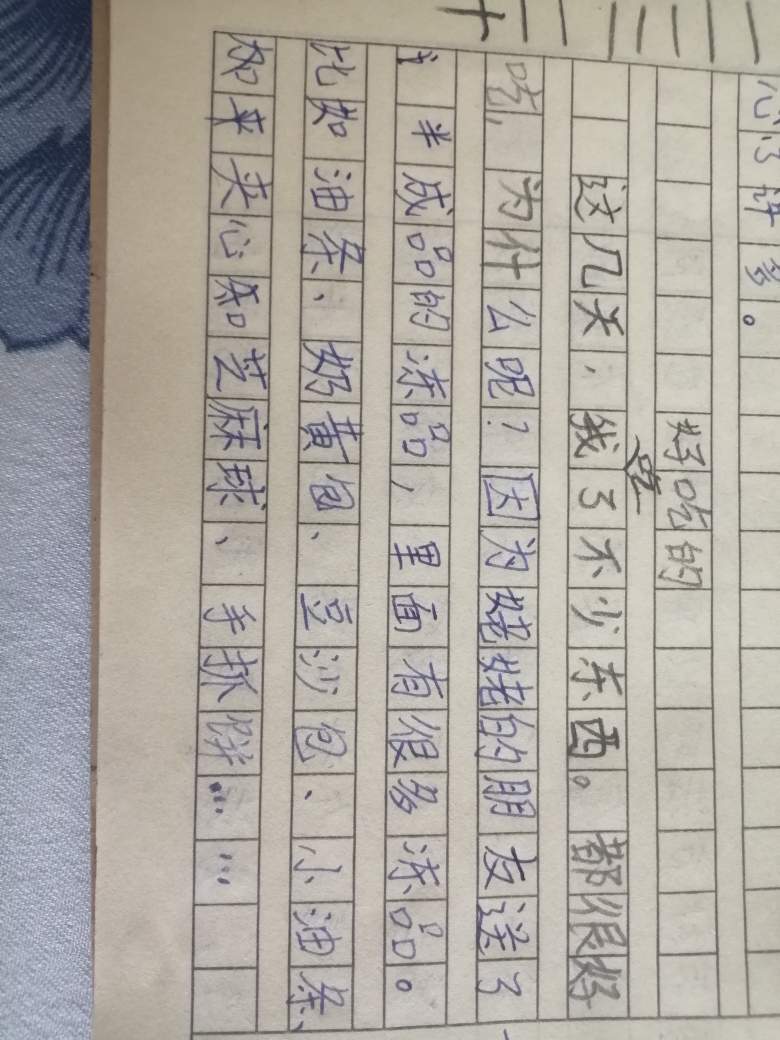 心了许多。
好吃的
这几天，我党了不少东西。都很好
吃，为什么呢？因为姥姥的朋友送了
半成品的冻品，里面有很多冻品。
比如油条、奶黄包、豆沙包、小油条、
加来夹心和芝麻球、手抓饼……